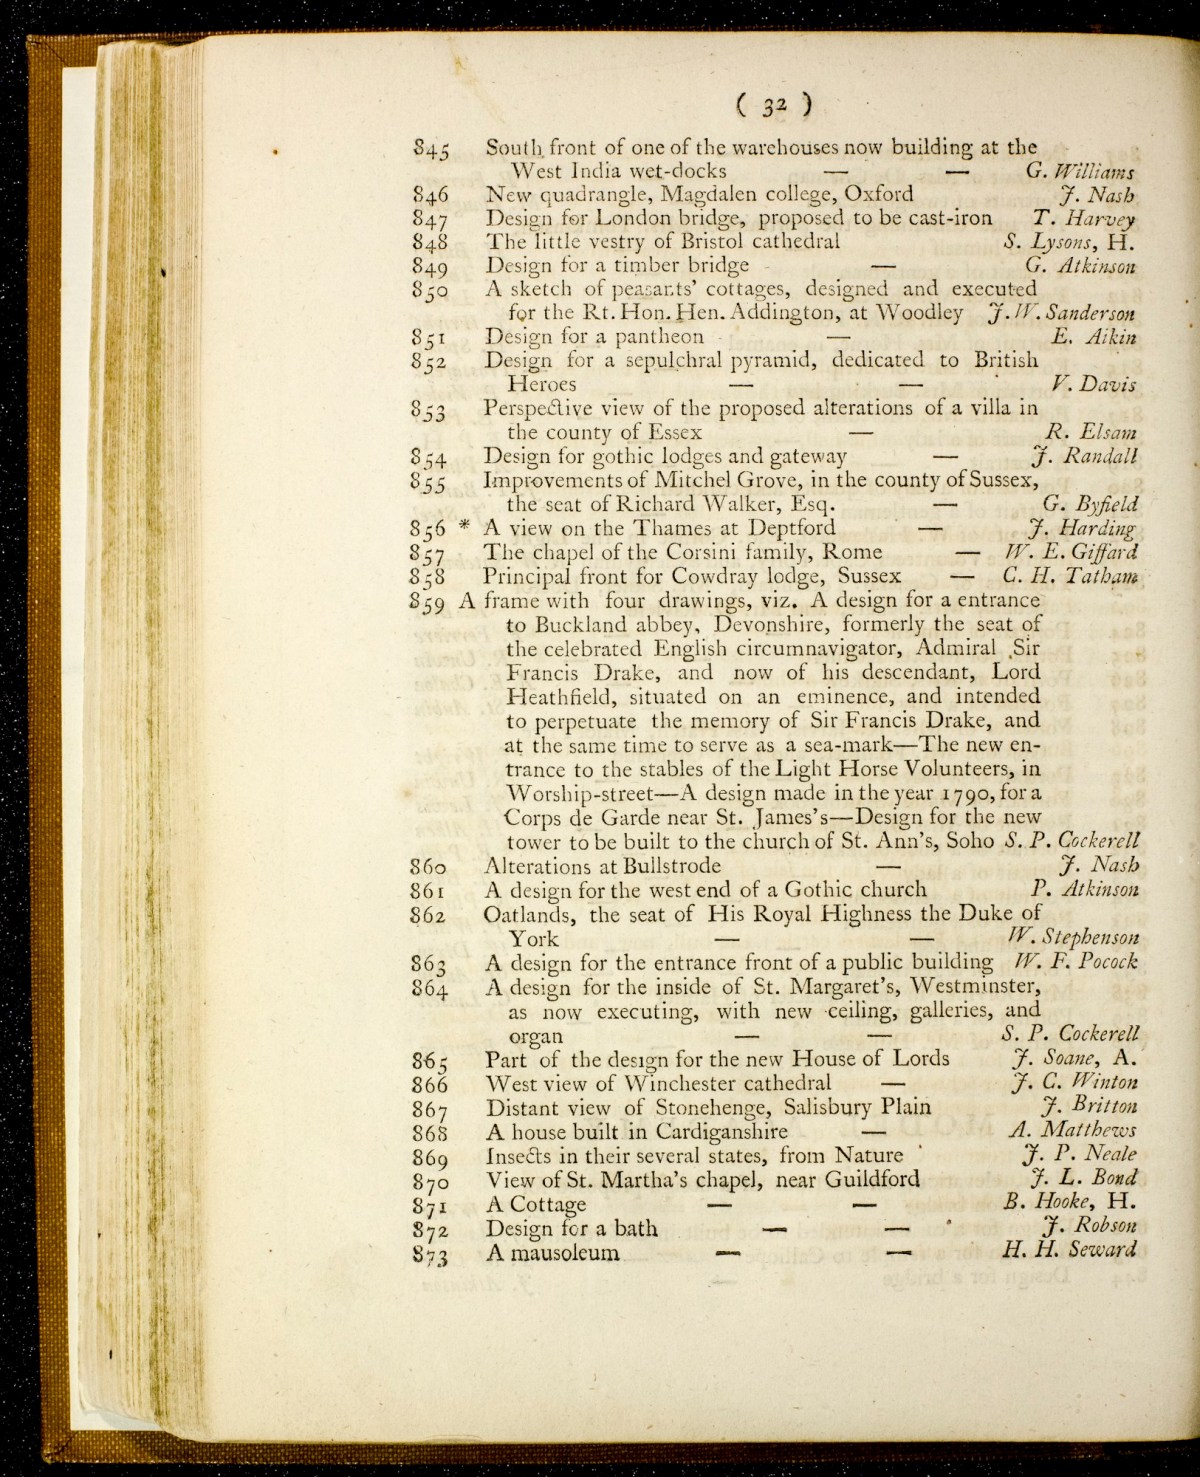 ( 32 )
845 South front of one of the warehouses now building at the
West India wet-docks — — G. Williams
846 New quadrangle, Magdalen college, Oxford J. Nash
847 Design for London bridge, proposed to be cast-iron T. Harvey
848 The little vestry of Bristol cathedral S. Lysons, H.
849 Design for a timber bridge — G. Atkinson
850 A sketch of peasants' cottages, designed and executed
for the Rt. Hon. Hen. Addington, at Woodley J. W. Sanderson
851 Design for a pantheon — E. Aikin
852 Design for a sepulchral pyramid, dedicated to British
Heroes — — V. Davis
853 Perspective view of the proposed alterations of a villa in
the county of Essex — R. Elsam
854 Design for gothic lodges and gateway — J. Randall
855 Improvements of Mitchel Grove, in the county of Sussex,
the seat of Richard Walker, Esq. — G. Byfield
856 * A view on the Thames at Deptford — J. Harding
857 The chapel of the Corsini family, Rome — W. E. Giffard
858 Principal front for Cowdray lodge, Sussex — C. H. Tatham
859 A frame with four drawings, viz. A design for a entrance
to Buckland abbey, Devonshire, formerly the seat of
the celebrated English circumnavigator, Admiral Sir
Francis Drake, and now of his descendant, Lord
Heathfield, situated on an eminence, and intended
to perpetuate the memory of Sir Francis Drake, and
at the same time to serve as a sea-mark—The new en-
trance to the stables of the Light Horse Volunteers, in
Worship-street—A design made in the year 1790, for a
Corps de Garde near St. James's—Design for the new
tower to be built to the church of St. Ann's, Soho S. P. Cockerell
860 Alterations at Bullstrode — J. Nash
861 A design for the west end of a Gothic church P. Atkinson
862 Oatlands, the seat of His Royal Highness the Duke of
York — — W. Stephenson
863 A design for the entrance front of a public building W. F. Pocock
864 A design for the inside of St. Margaret's, Westminster,
as now executing, with new ceiling, galleries, and
organ — — S. P. Cockerell
865 Part of the design for the new House of Lords J. Soane, A.
866 West view of Winchester cathedral — J. C. Winton
867 Distant view of Stonehenge, Salisbury Plain J. Britton
868 A house built in Cardiganshire — A. Matthews
869 Insects in their several states, from Nature J. P. Neale
870 View of St. Martha's chapel, near Guildford J. L. Bond
871 A Cottage — — B. Hooke, H.
872 Design for a bath — — J. Robson
873 A mausoleum — — H. H. Seward